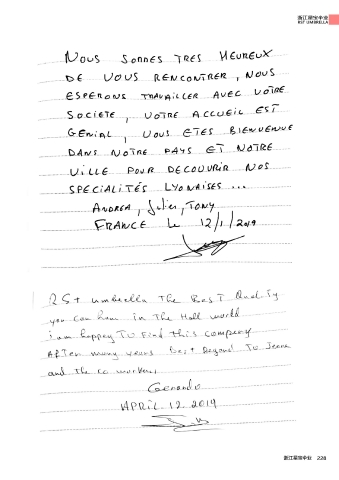 浙江星宝伞业
RST UMBRELLA
NOUS SOMMES TRES HEUREUX
DE VOUS RENCONTRER, NOUS
ESPERONS TRAVAILLER AVEC VOTRE
SOCIETE, VOTRE ACCUEIL EST
GENIAL, VOUS ETES BIENVENUE
DANS NOTRE PAYS ET NOTRE
VILLE POUR DECOUVRIR NOS
SPECIALITÉS LYONAISES ...
ANDREA, Julien, TONY
FRANCE Le 12/1/2019
RSt umbrella The BesT QualiTy
you can have in The Hall world
i am happy To Find this company
AFTer many years Best Regard To
and the co workers
Gerardo
APRIL 12 2019
浙江星宝伞业 228